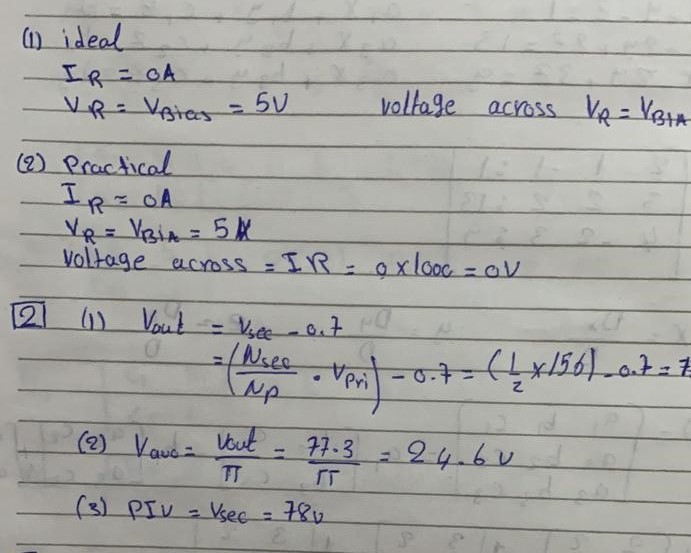 (1) ideal
I_R = 0A
V_R = V_Bias = 5V voltage across V_R = V_BIA
(2) Practical
I_R = 0A
V_R = V_BIA = 5
Voltage across = IR = 0 x 1000 = 0V
2 (1) Vout = Vsec - 0.7
= (Nsec/Np · Vpri) - 0.7 = (1/2 x 156) - 0.7 = 7
(2) Vavg = Vout/π = 77.3/π = 24.6 V
(3) PIV = Vsec = 78V